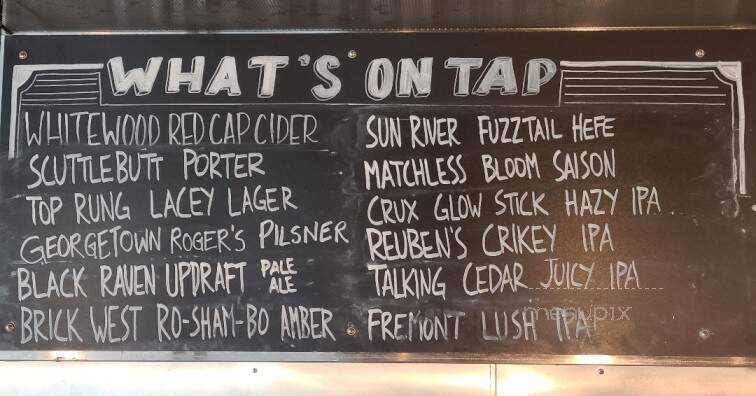 WHAT'S ON TAP
WHITEWOOD RED CAP CIDER
SCUTTLEBUTT PORTER
TOP RUNG LACEY LAGER
GEORGETOWN ROGER'S PILSNER
BLACK RAVEN UPDRAFT PALE ALE
BRICK WEST RO-SHAM-BO AMBER
SUN RIVER FUZZTAIL HEFE
MATCHLESS BLOOM SAISON
CRUX GLOW STICK HAZY IPA
REUBEN'S CRIKEY IPA
TALKING CEDAR JUICY IPA
FREMONT LUSH IPA
menupix